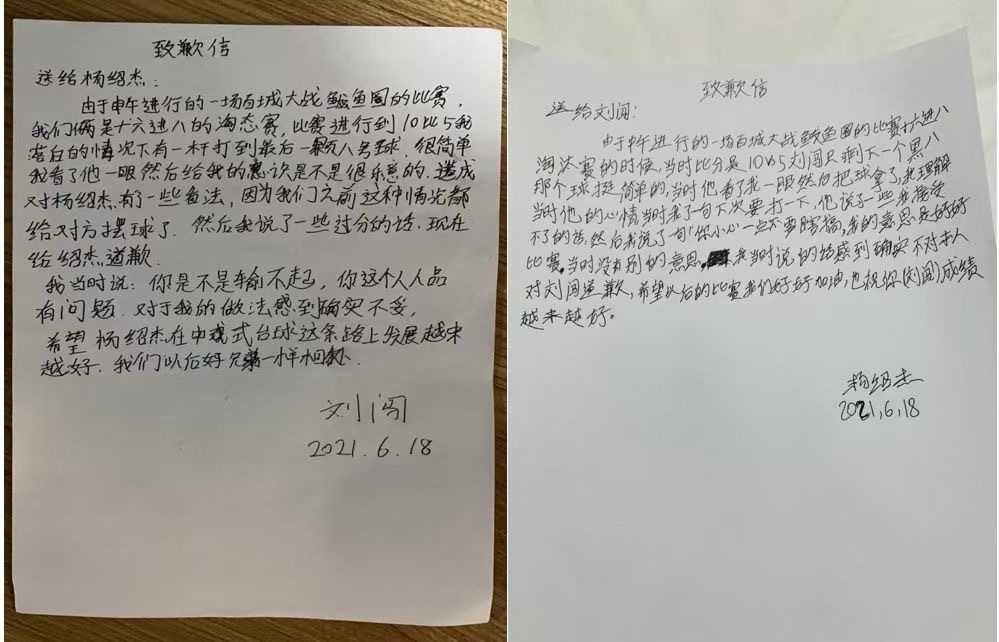 致歉信
送给杨绍杰:
由于中午进行的一场百城大战鲅鱼圈的比赛,
我们俩是十六进八的淘汰赛,比赛进行到10比5我
落自的情况下有一杆打到最后一颗八号球,很简单
我看了他一眼然后给我的意识是不是很乐意的.造成
对杨绍杰有了一些看法,因为我们之前这种情况都
给对方摆球了.然后我说了一些过分的话.现在
给绍杰道歉.
我当时说:你是不是输不起,你这个人人品
有问题.对于我的做法感到确实不妥,
希望杨绍杰在中式台球这条路上发展越来
越好.我们以后好兄弟一样相处.
刘闯
2021.6.18
致歉信
送给刘闯:
由于中午进行的一场百城大战鲅鱼圈的比赛十六进八
淘汰赛的时候,当时比分是10比5刘闯只剩下一个黑八
那个球挺简单的,当时他看了我一眼然后把球拿了,我理解
当时他的心情当时我了句下次要打一下,他说了一些我接受
不了的话,然后我说了句「你小心」一点不要瞎搞,我的意思是好好
比赛,当时没有别的意思,我当时说的话感到确实不对本人
对刘闯道歉,希望以后的比赛我们好好加油,也祝你刘闯成绩
越来越好。
杨绍杰
2021,6,18